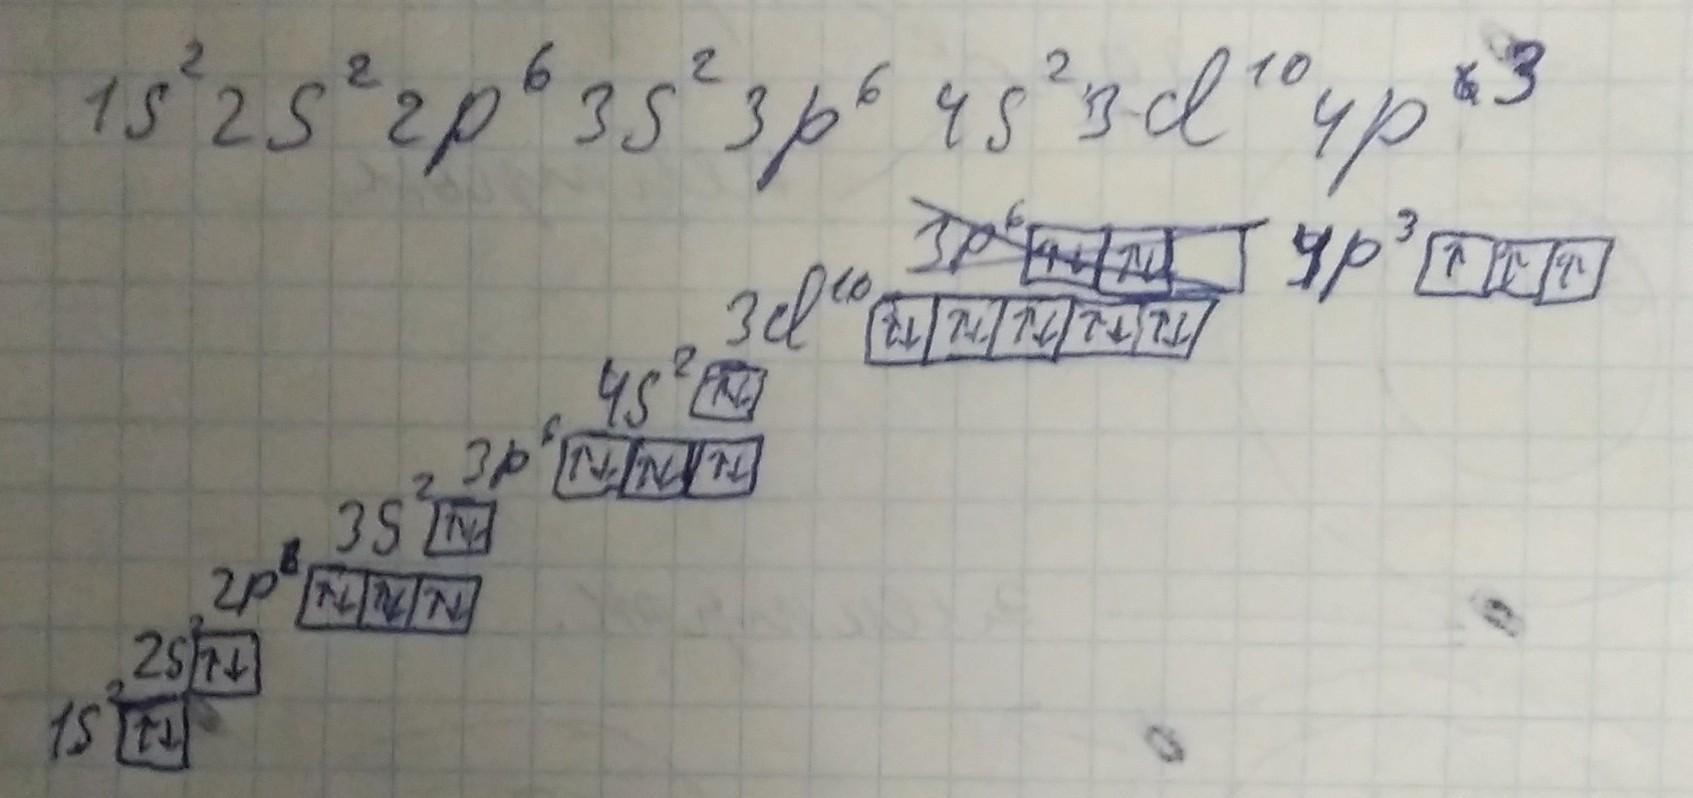 1s² 2s² 2p⁶ 3s² 3p⁶ 4s² 3d¹⁰ 4p³
3p⁶ ↑↓ ↑↓ 4p³ ↑ ↑ ↑
3d¹⁰ ↑↓ ↑↓ ↑↓ ↑↓ ↑↓
4s² ↑↓
3p⁶ ↑↓ ↑↓ ↑↓
3s² ↑↓
2p⁶ ↑↓ ↑↓ ↑↓
2s² ↑↓
1s² ↑↓